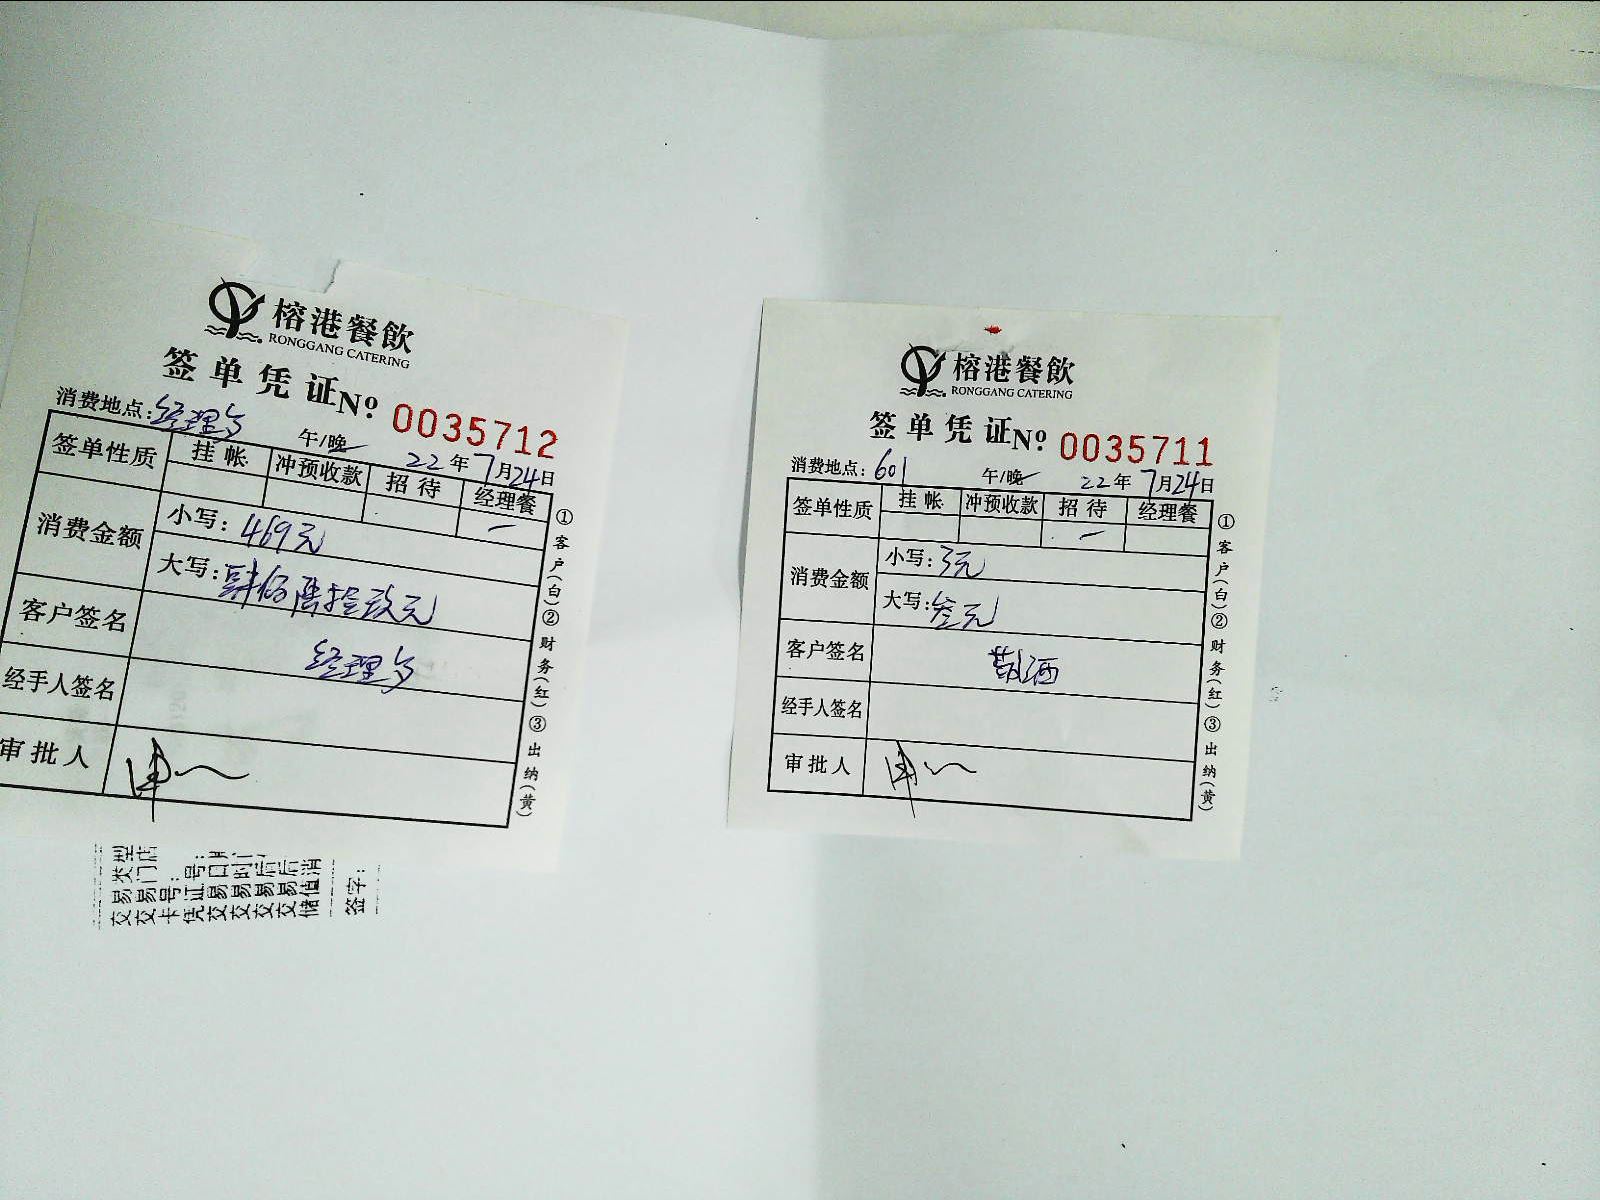 榕港餐飲
RONGGANG CATERING
签单凭证 №: 0035712
消费地点: 经理
午/晚 22年7月24日
签单性质 挂帐 冲预收款 招待 经理餐
一
消费金额 小写: 469元
大写: 肆佰陆拾玖元
客户签名 经理
经手人签名
审批人
①客户(白)②财务(红)③出纳(黄)
交易类型
交易门店
卡号:
凭证号:
交易
交易时
交易后
交易后
储值消
签字:
榕港餐飲
RONGGANG CATERING
签单凭证 №: 0035711
消费地点: 601 午/晚 22年7月24日
签单性质 挂帐 冲预收款 招待 经理餐
一
消费金额 小写: 3元
大写: 叁元
客户签名
经手人签名
审批人
①客户(白)②财务(红)③出纳(黄)